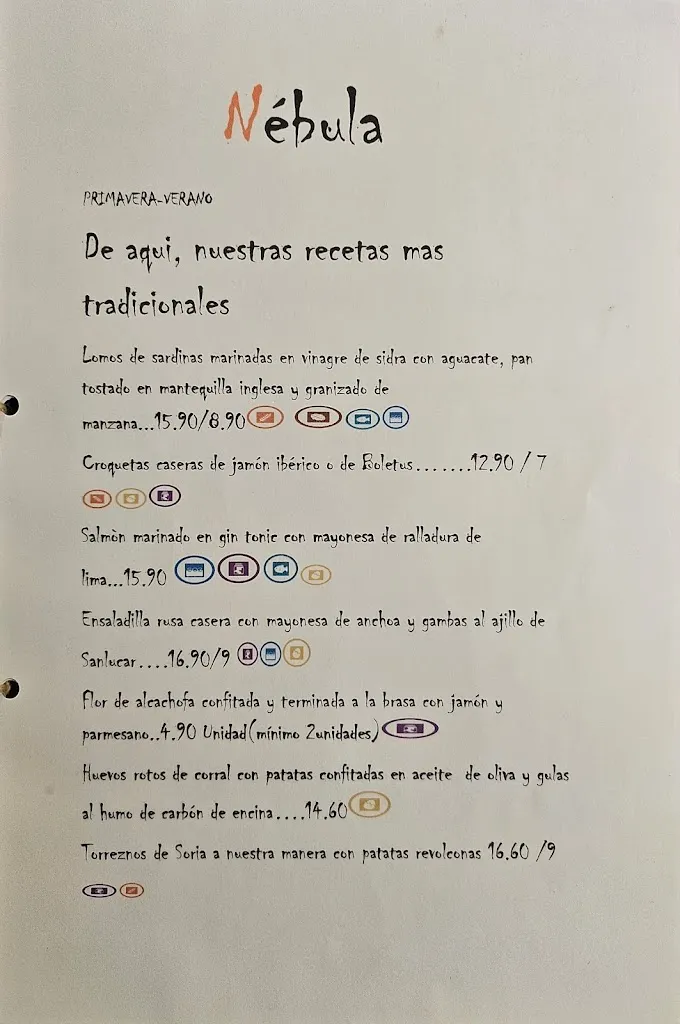 Nébula
PRIMAVERA-VERANO
De aqui, nuestras recetas mas
tradicionales
Lomos de sardinas marinadas en vinagre de sidra con aguacate, pan
tostado en mantequilla inglesa y granizado de
manzana...15.90/8.90
Croquetas caseras de jamón ibérico o de Boletus.......12.90 / 7
Salmòn marinado en gin tonic con mayonesa de ralladura de
lima...15.90
Ensaladilla rusa casera con mayonesa de anchoa y gambas al ajillo de
Sanlucar....16.90/9
Flor de alcachofa confitada y terminada a la brasa con jamón y
parmesano..4.90 Unidad(mínimo 2unidades)
Huevos rotos de corral con patatas confitadas en aceite de oliva y gulas
al humo de carbón de encina....14.60
Torreznos de Soria a nuestra manera con patatas revolconas 16.60 /9